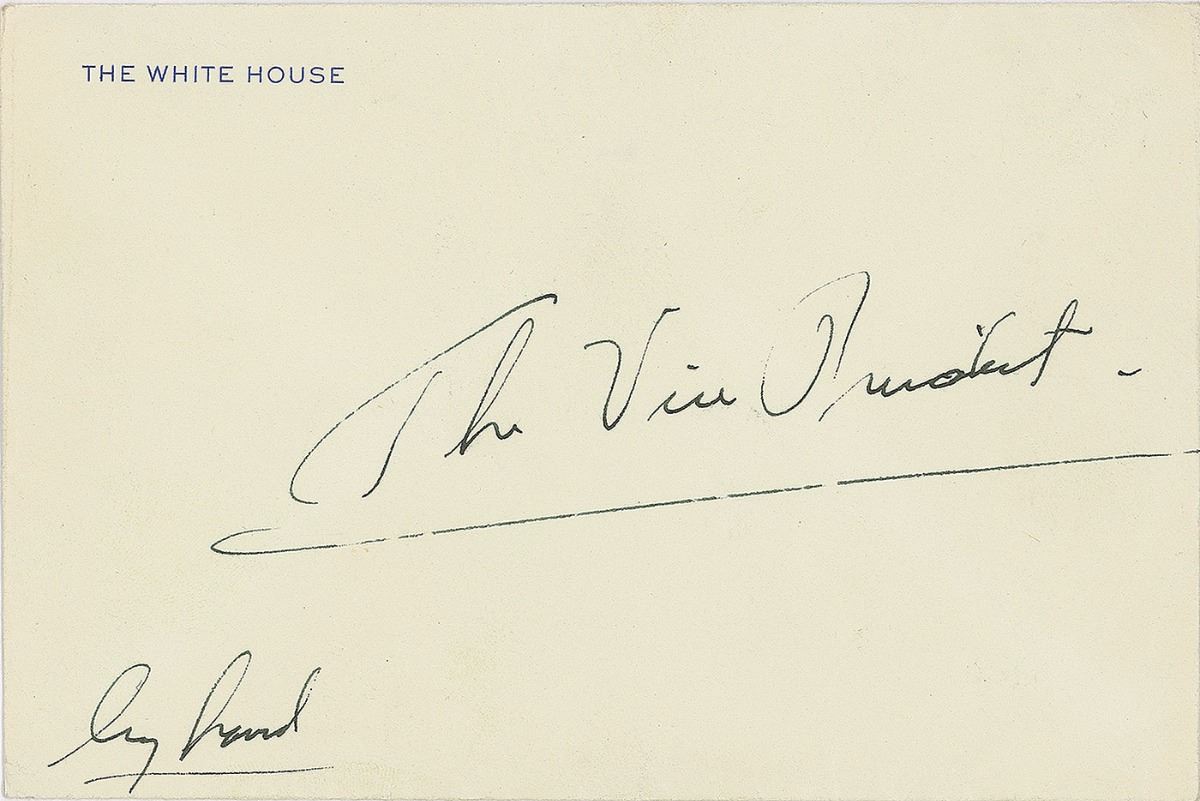 THE WHITE HOUSE
The Vice President -
by hand